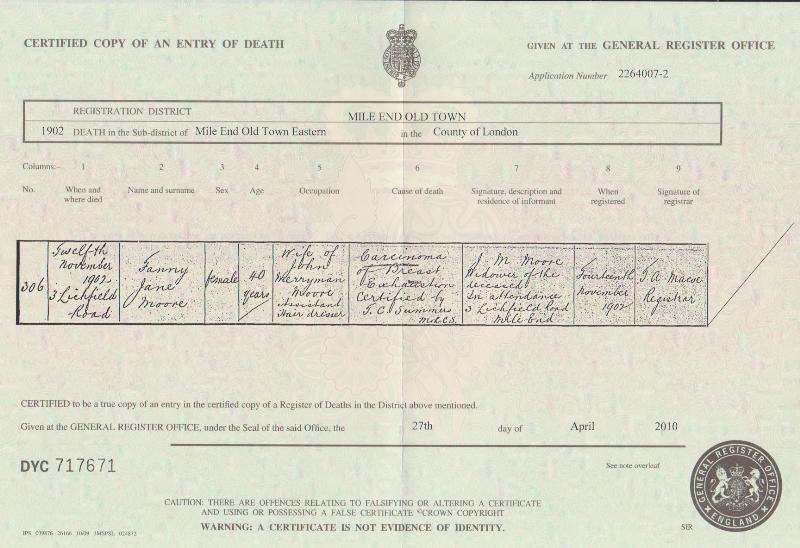 CERTIFIED COPY OF AN ENTRY OF DEATH
GIVEN AT THE GENERAL REGISTER OFFICE
Application Number 2264007-2
REGISTRATION DISTRICT MILE END OLD TOWN
1902 DEATH in the Sub-district of Mile End Old Town Eastern in the County of London
Columns:- 1 2 3 4 5 6 7 8 9
No. When and where died Name and surname Sex Age Occupation Cause of death Signature, description and residence of informant When registered Signature of registrar
306
Twelfth
November
1902
3 Lichfield
Road
Fanny
Jane
Moore
female
40
years
Wife of
John
Merryman
Moore
Assistant
Hair dresser
Carcinoma
of Breast
Exhaustion
Certified by
T. C. Summers
M.R.C.S.
J M Moore
Widower of the
deceased
In attendance
3 Lichfield Road
Mile End
Fourteenth
November
1902
Registrar
CERTIFIED to be a true copy of an entry in the certified copy of a Register of Deaths in the District above mentioned.
Given at the GENERAL REGISTER OFFICE, under the Seal of the said Office, the 27th day of April 2010
DYC 717671
See note overleaf
CAUTION: THERE ARE OFFENCES RELATING TO FALSIFYING OR ALTERING A CERTIFICATE
AND USING OR POSSESSING A FALSE CERTIFICATE ©CROWN COPYRIGHT
WARNING: A CERTIFICATE IS NOT EVIDENCE OF IDENTITY.
GENERAL REGISTER OFFICE
ENGLAND